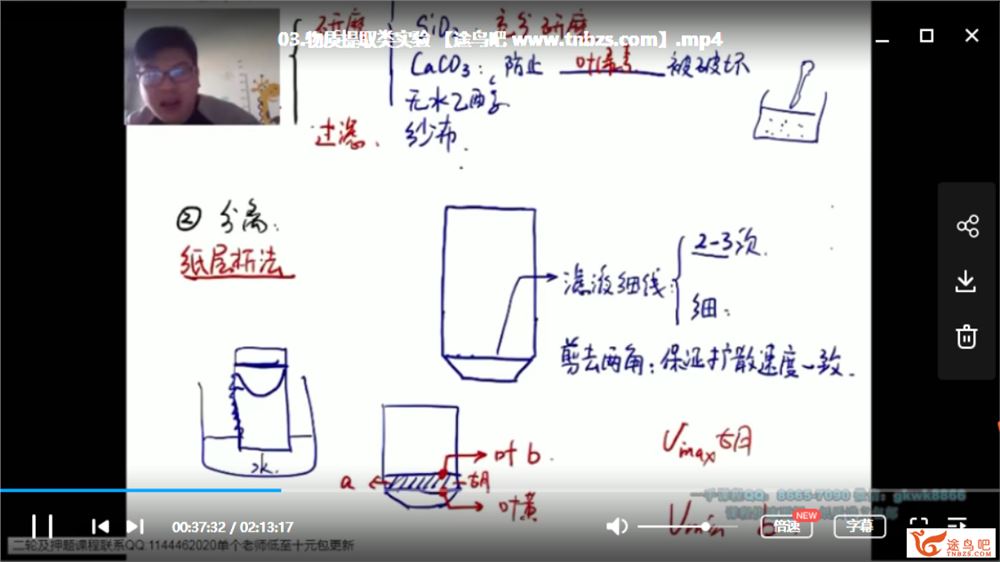 研磨
SiO₂:充分研磨
03.物质提取类实验 【途鸟吧 www.tnbzs.com】.mp4
CaCO₃:防止 叶绿素 被破坏
无水乙醇
过滤、 纱布.
② 分离:
纸层析法
滤液细线:
2-3次.
细:
剪去两角:保证扩散速度一致.
水
叶b.
a
胡
叶黄
Vmax 胡
Vmin b
一手课程QQ: 8665-7090 微信: gkwk8866
00:37:32 / 02:13:17
倍速
NEW
字幕
二轮及押题课程联系QQ:1144462020单个老师低至十元包更新
途鸟吧
TNBZS.COM